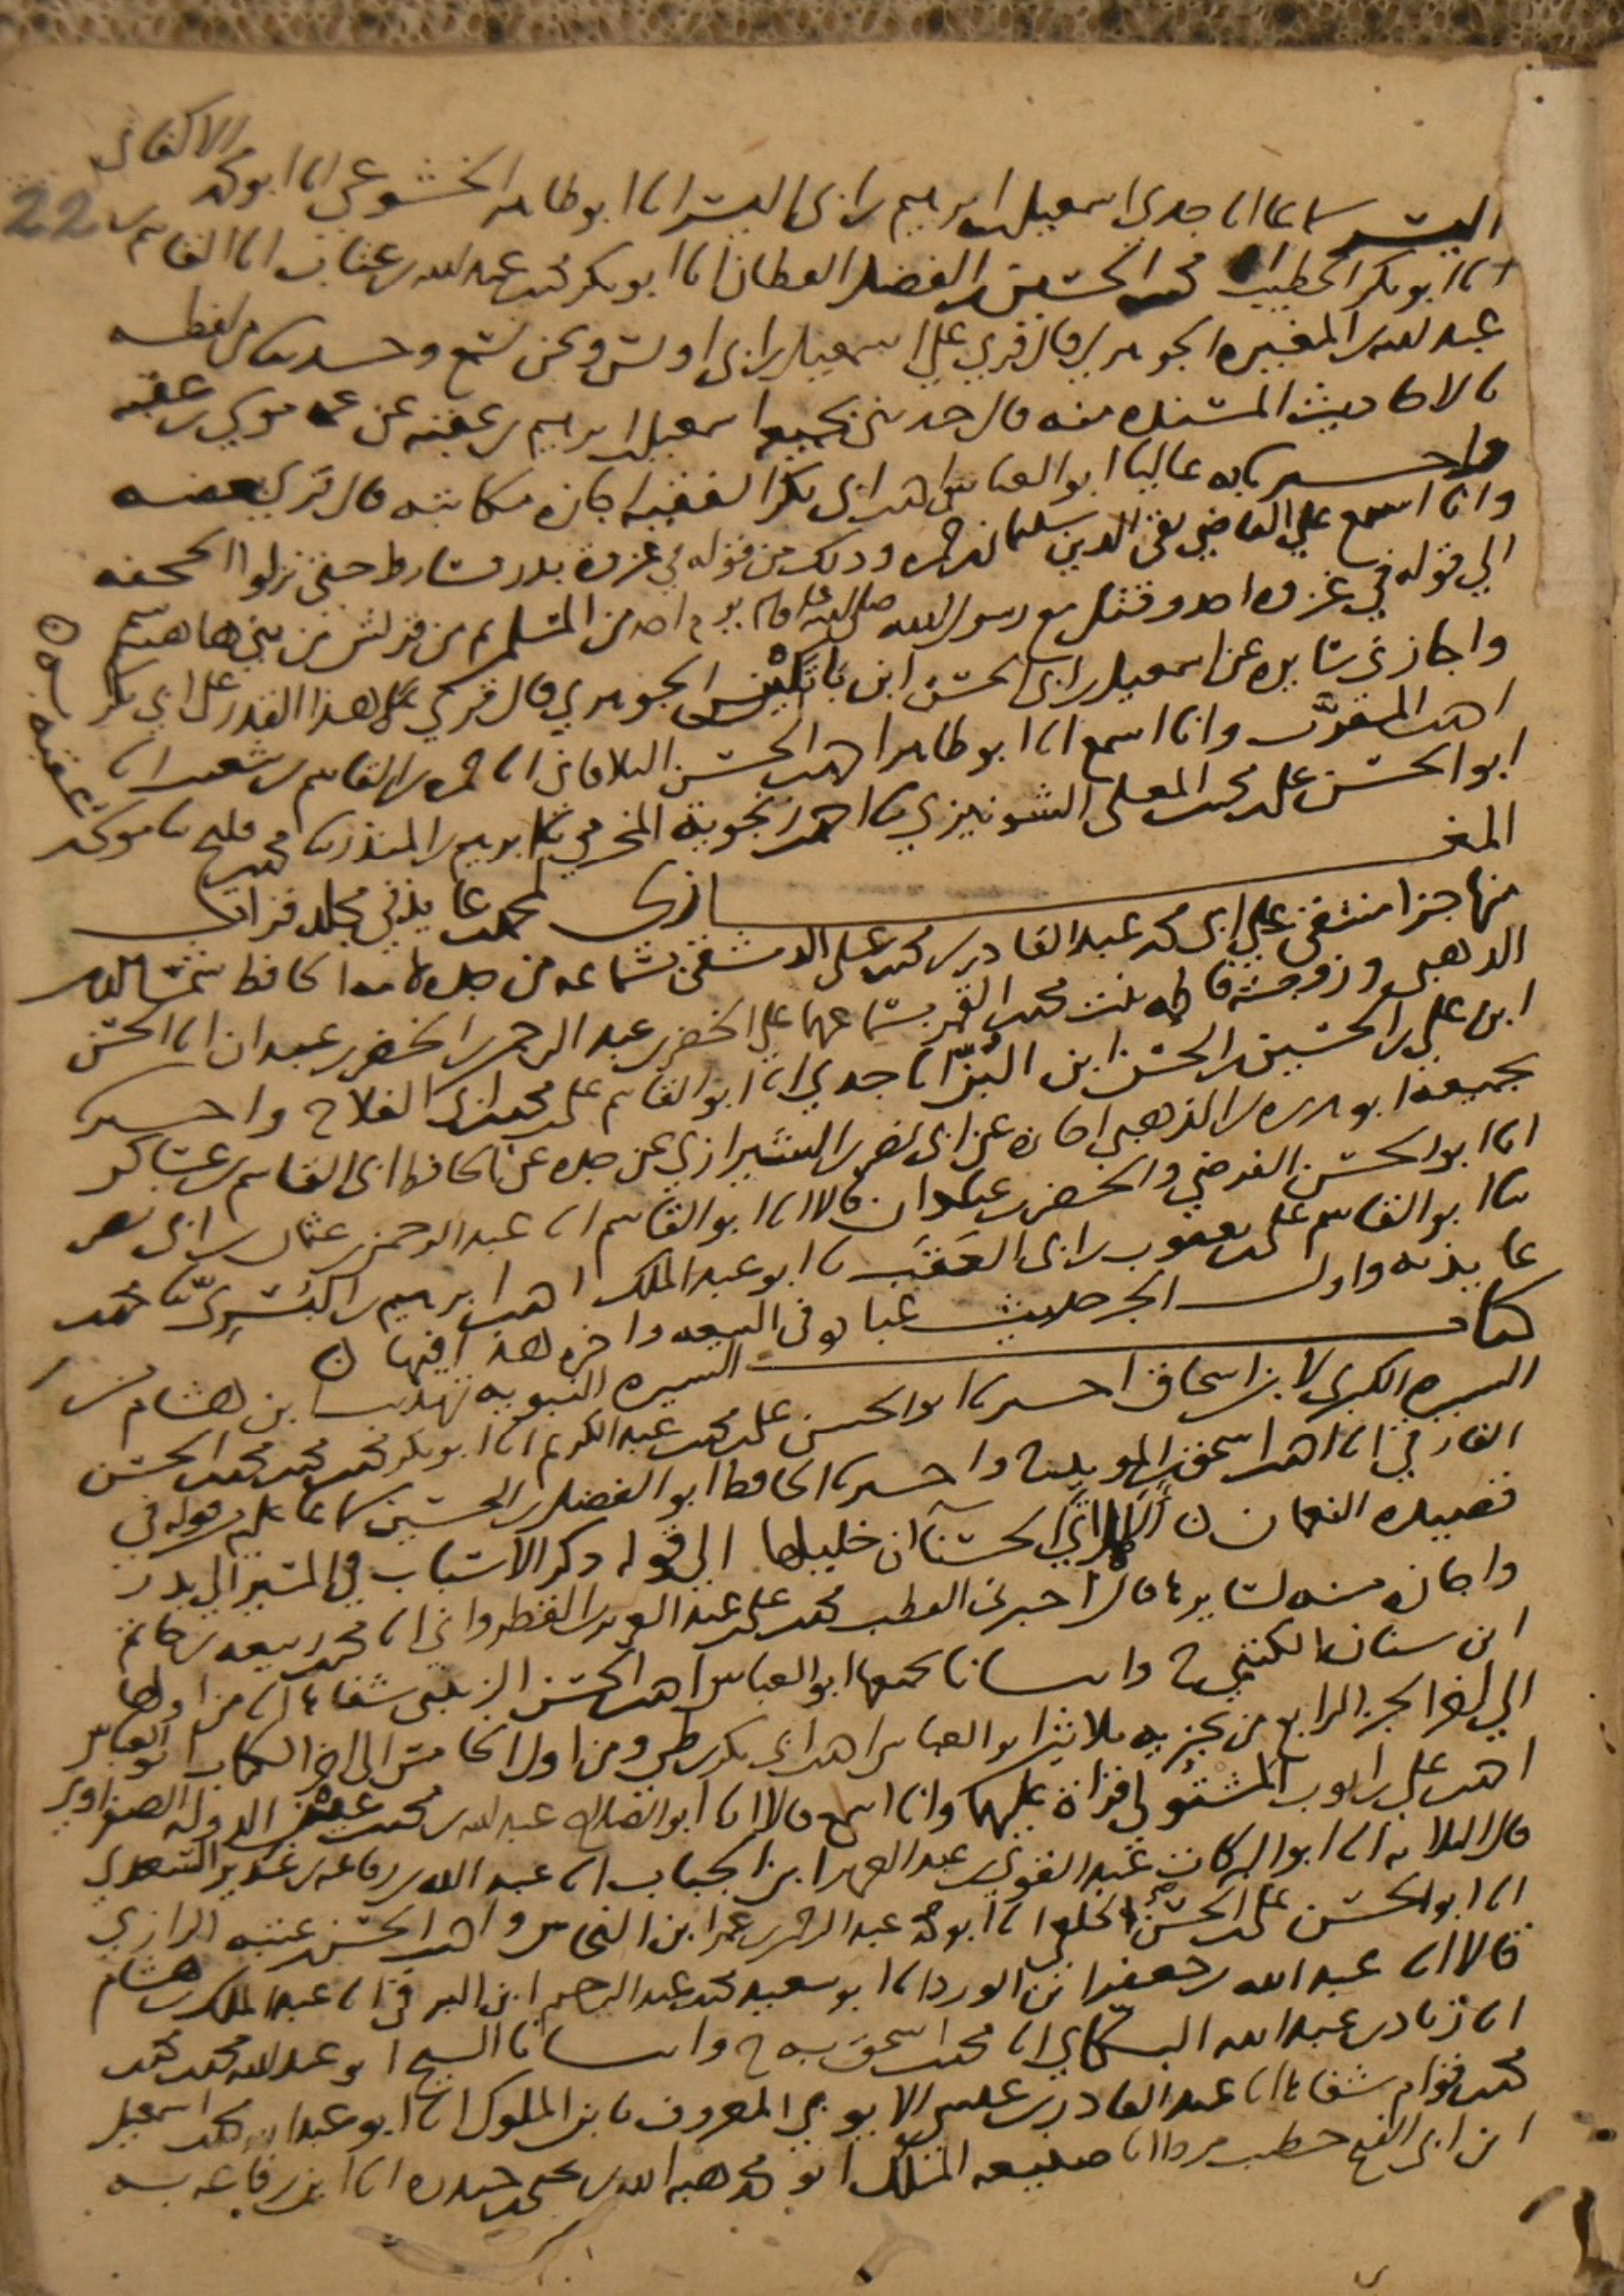 الاكفاني
اليسر سماعا انا جدي اسمعيل بن ابرهيم بن ابي اليسر انا ابو طاهر الخشوعي انا ابو محمد
انا ابو بكر الخطيب انا محمد بن الحسين بن الفضل القطان انا ابو بكر محمد بن عبد الله بن عتاب انا القاسم بن
22
عبد الله بن المغيره الجوهري قال قري على اسمعيل بن ابي اويس ونحن نسمع وحدثنا من لفظه
بالاحاديث المسنده منه قال حدثني بجميعه اسمعيل بن ابرهيم بن عقبه عن عمه موسى بن عقبه
واخبرنا به عاليا ابو العباس احمد بن ابي بكر الفقيه اجازه مكاتبه قال قري بعضه
وانا اسمع على القاضي تقي الدين سليمان بن حمزه وذلك من قوله في غزوة بدر فسار حتى نزلوا الجحفه
الى قوله في غزوة احد وقتل مع رسول الله صلى الله عليه وسلم يوم احد من المسلمين من قريش من بني هاشم
واجازني سايره عن اسمعيل بن ابي الحسن ابن باتكين الجوهري قال قري هذا القدر على ابي بكر
احمد المقرب وانا اسمع انا ابو طاهر احمد بن الحسن الباقلاني انا حمزه بن القاسم
ابو الحسن علي بن محمد بن المعلى الشونيزي نا احمد بن زنجويه المخرمي نا ابرهيم بن المنذر نا محمد بن فليح نا موسى
بن عقبه به ه
المغازي لمحمد بن عايذ في مجلد قرات
منها جزا منتقى على ابي محمد عبد القادر بن محمد بن علي الدمشقي بسماعه من جده لامه الحافظ شمس الدين
الذهبي وزوجته فاطمه بنت محمد القمر بسماعهما على الخضر بن عبد الرحمن بن الخضر بن عبدان انا الحسن
ابن علي بن الحسين بن الحسن ابن البن انا جدي انا ابو القاسم علي بن محمد بن ابي العلاح واخبرنا
بجميعه ابو هريره بن الذهبي اجازه عن ابي نصر بن الشيرازي عن جده عن الحافظ ابي القاسم بن عساكر
انا ابو الحسن الفرضي والخضر بن عبدان قالا انا ابو القاسم انا عبد الرحمن بن عثمان بن ابي نصر
نا ابو القاسم علي بن يعقوب بن ابي العقب نا ابو عبد الملك احمد بن ابرهيم البسري نا محمد بن
عايذ به واول الجز حديث عباده في البيعه واخره هذا افيها ه
كتاب السيره النبويه تهذيب ابن هشام من
السيره الكبرى لابن اسحاق اخبرنا ابو الحسن علي بن محمد بن عبد الكريم انا ابو بكر محمد بن محمد بن محمد بن الحسن
الفارقي انا احمد بن اسحق بن المويد ح واخبرنا الحافظ ابو الفضل بن الحسين سماعا عليه من قوله في
قصيده النعمان الى قوله ذكر الاسباب في المسير الى بدر
واجازه منه لسايرها قال اخبرني القطب محمد بن علي بن عبد العزيز القطرواني انا محمد بن ربيعه بن حاتم
ابن سنان الكتبي ح وانبانا بجميعها ابو العباس احمد بن الحسن الزينبي شفاها انا من اولها
الى اخر الجز الرابع من تجزيه ثلاثين ابو العباس احمد بن ابي بكر بن طي ومن اول الخامس الى اخر الكتاب ابو العباس
احمد بن علي بن ايوب المشتولي قراة عليهما وانا اسمع قالا انا ابو الصلاح عبد الله بن محمد الدوله الصنهاجي
قال الثلاثه انا ابو البركات عبد القوي بن عبد العزيز ابن الجباب انا عبد الله بن رفاعه بن غدير السعدي
انا ابو الحسن علي بن الحسن الخلعي انا ابو محمد عبد الرحمن بن عمر ابن النحاس واحمد بن الحسن بن عتبه الرازي
قالا انا عبد الله بن جعفر ابن الورد انا ابو سعيد بن عبد الرحيم ابن البرقي انا عبد الملك بن هشام
انا زياد بن عبد الله البكاي انا محمد بن اسحق به ح وانبانا الشيخ ابو عبد الله محمد بن محمد بن
محمد بن قوام شفاها انا عبد القادر بن علي الايوبي المعروف بابن الملوك انا ابو عبد الله محمد بن اسمعيل
ابن ابي الفتح خطيب مردا انا صنيعه الملك ابو محمد هبه الله بن يحيى بن حيدره انا ابن رفاعه به